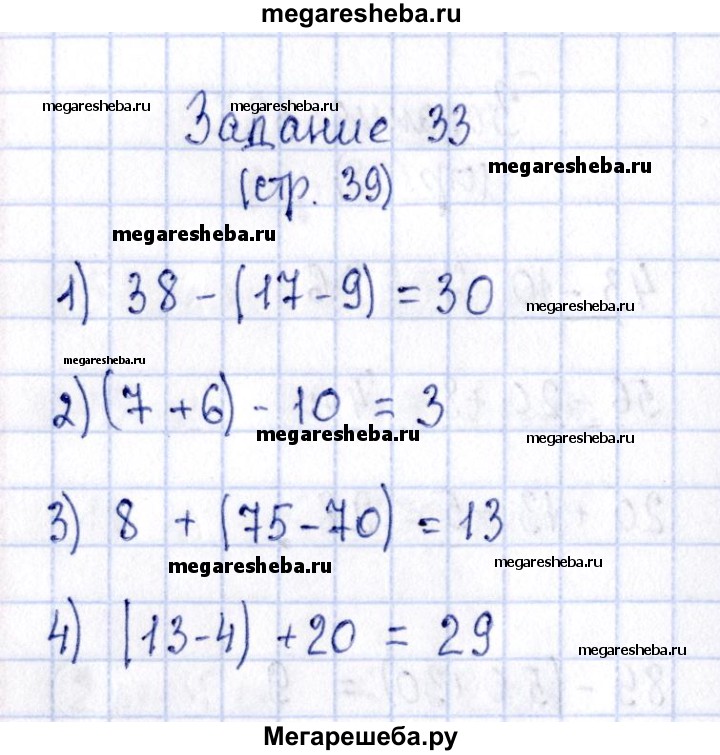 megaresheba.ru
megaresheba.ru megaresheba.ru
Задание 33
megaresheba.ru
(стр. 39)
megaresheba.ru
1) 38 - (17 - 9) = 30
megaresheba.ru
megaresheba.ru
2) (7 + 6) - 10 = 3
megaresheba.ru megaresheba.ru
3) 8 + (75 - 70) = 13
megaresheba.ru megaresheba.ru
4) (13 - 4) + 20 = 29
megaresheba.ru
Мегарешеба.ру